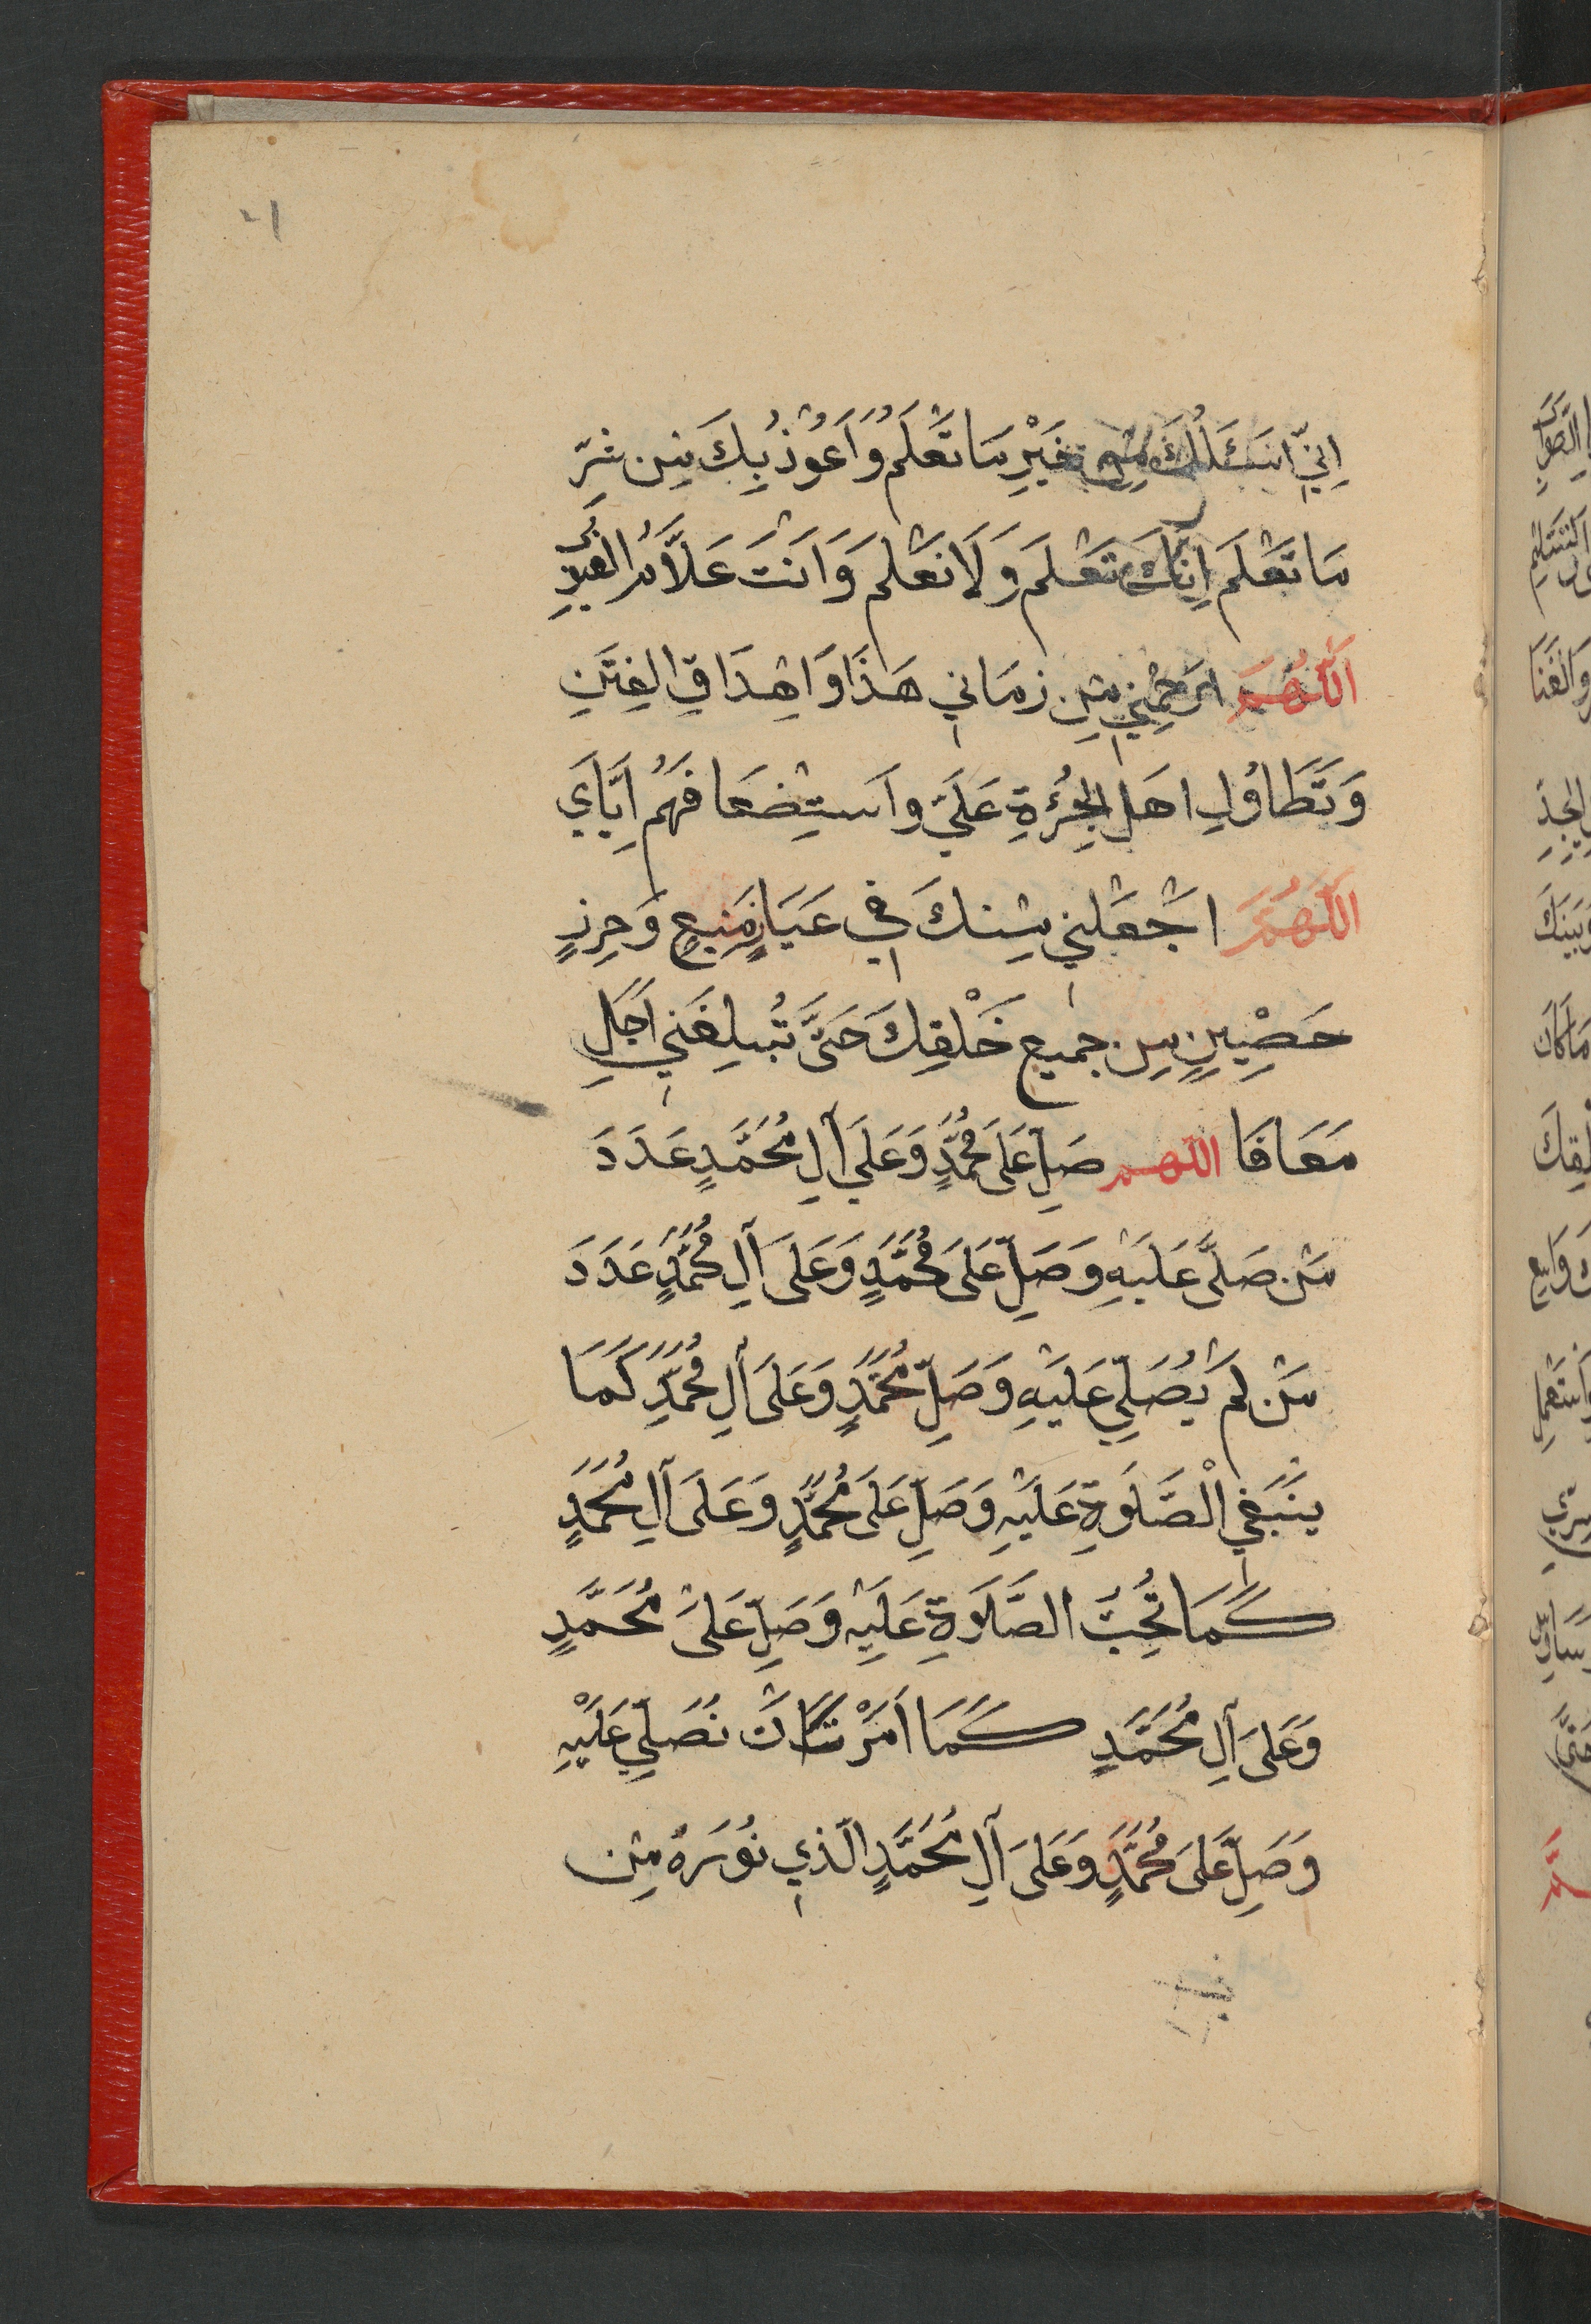 اِنّي اَسَئَلُكَ مِنْ خَيْرِ مَا تَعْلَمُ وَاَعُوْذُ بِكَ مِن شَرِّ
مَا تَعْلَم اِنَّكَ تَعْلَم وَلَا نَعْلَم وَاَنتَ عَلَّامُ الغُيُوبِ
اَللّٰهُمَّ ارْحَمْنِي مِن زمَاني هَذَا وَاِحْدَاقِ الفِتَنِ
وَتَطَاوُلِ اهَل الجُرْءَةِ عَلَيَّ واَستِضعَافَهُم اِيَّايَ
اَللّٰهُمَّ اجْعَلْني مِنكَ في عَيَاذٍ مَنِيعٍ وَحِرزٍ
حَصِيْنٍ مِن جميع خَلْقِكَ حَتَّى تُبلِغَني اَجَلِي
مَعَافَا اللّٰهم صَلِّ عَلَى مُحَمَّدٍ وَعَلَى آلِ مُحَمَّدٍ عَدَدَ
مَن صَلَّى عَلَيْهِ وَصَلِّ عَلَى مُحَمَّدٍ وَعَلَى آلِ مُحَمَّدٍ عَدَدَ
مَن لَم يُصَلِّي عَلَيْهِ وَصَلِّ مُحَمَّدٍ وَعَلَى آلِ مُحَمَّدٍ كَمَا
ينَبَغي الْصَّلَوةِ عَلَيْهِ وَصَلِّ عَلَى مُحَمَّدٍ وَعَلَى آلِ مُحَمَّدٍ
كَمَا تُحِبّ الصَّلَاوةِ عَلَيْهِ وَصَلِّ عَلَى مُحَمَّدٍ
وَعَلَى آلِ مُحَمَّدٍ كَمَا اَمَرْتَنَا اَن نُصَلِّي عَلَيْهِ
وَصَلِّ عَلَى مُحَمَّدٍ وَعَلَى آلِ مُحَمَّدٍ الّذي نُوُرَهُ مِن